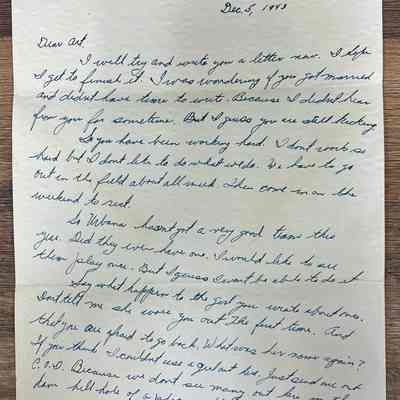 Dec. 5, 1943
Dear Art,
I will try and write you a letter now. I hope
I get to finish it. I was wondering if you got married
and didn't have time to write. Because I didn't hear
from you for sometime. But I guess you are still kicking.
So you have been working hard. I don't work so
hard but I don't like to do what we do. We have to go
out in the field about all week. Then come in on the
weekend to rest.
So Urbana hasn't got a very good team this
year. Did they ever have one. I would like to see
them play once. But I guess I won't be able to do it
Say what happen to the girl you wrote about once.
Dont tell me she wore you out the first time. And
that you are afraid to go back. What was her name again?
If you think I couldn't use a girl out here. Just send me one
C.O.D. Because we don't see many out here in the
damn hell-hole of a